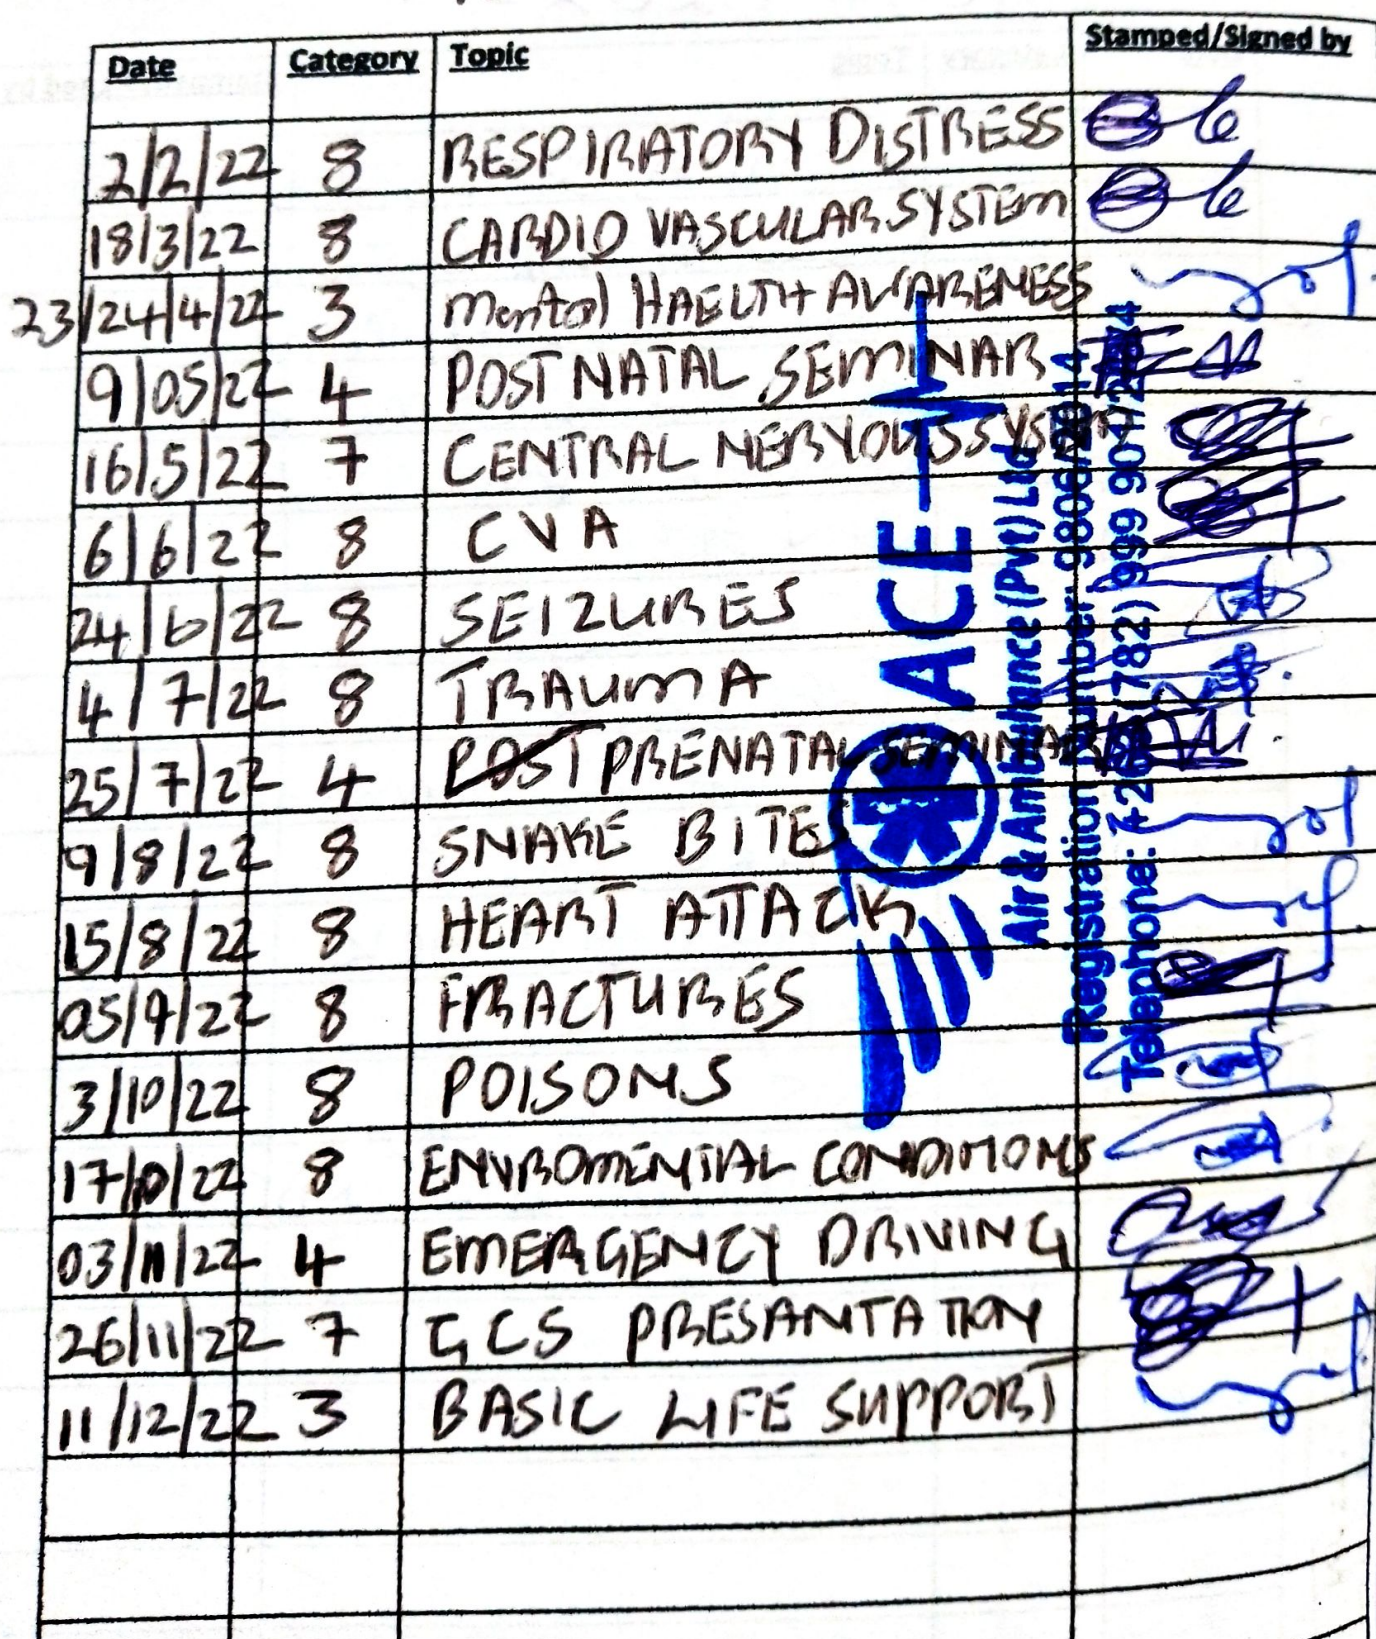 Date Category Topic Stamped/Signed by
2/2/22 8 RESPIRATORY DISTRESS
18/3/22 8 CARDIO VASCULAR SYSTEM
23/24/4/22 3 Mental HAELTH AWARENESS
9/05/22 4 POST NATAL SEMINAR
16/5/22 7 CENTRAL NERVOUS SYSTEM
6/6/22 8 CVA
24/6/22 8 SEIZURES
4/7/22 8 TRAUMA
25/7/22 4 POST PRENATAL SEMINAR
9/8/22 8 SNAKE BITE
15/8/22 8 HEART ATTACK
05/9/22 8 FRACTURES
3/10/22 8 POISONS
17/10/22 8 ENVROMENTIAL CONDITIONS
03/11/22 4 EMERGENCY DRIVING
26/11/22 7 GCS PRESANTATION
11/12/22 3 BASIC LIFE SUPPORT
ACE
Air & Ambulance (Pvt) Ltd
Registration Number:
Telephone: (782) 999 901/2